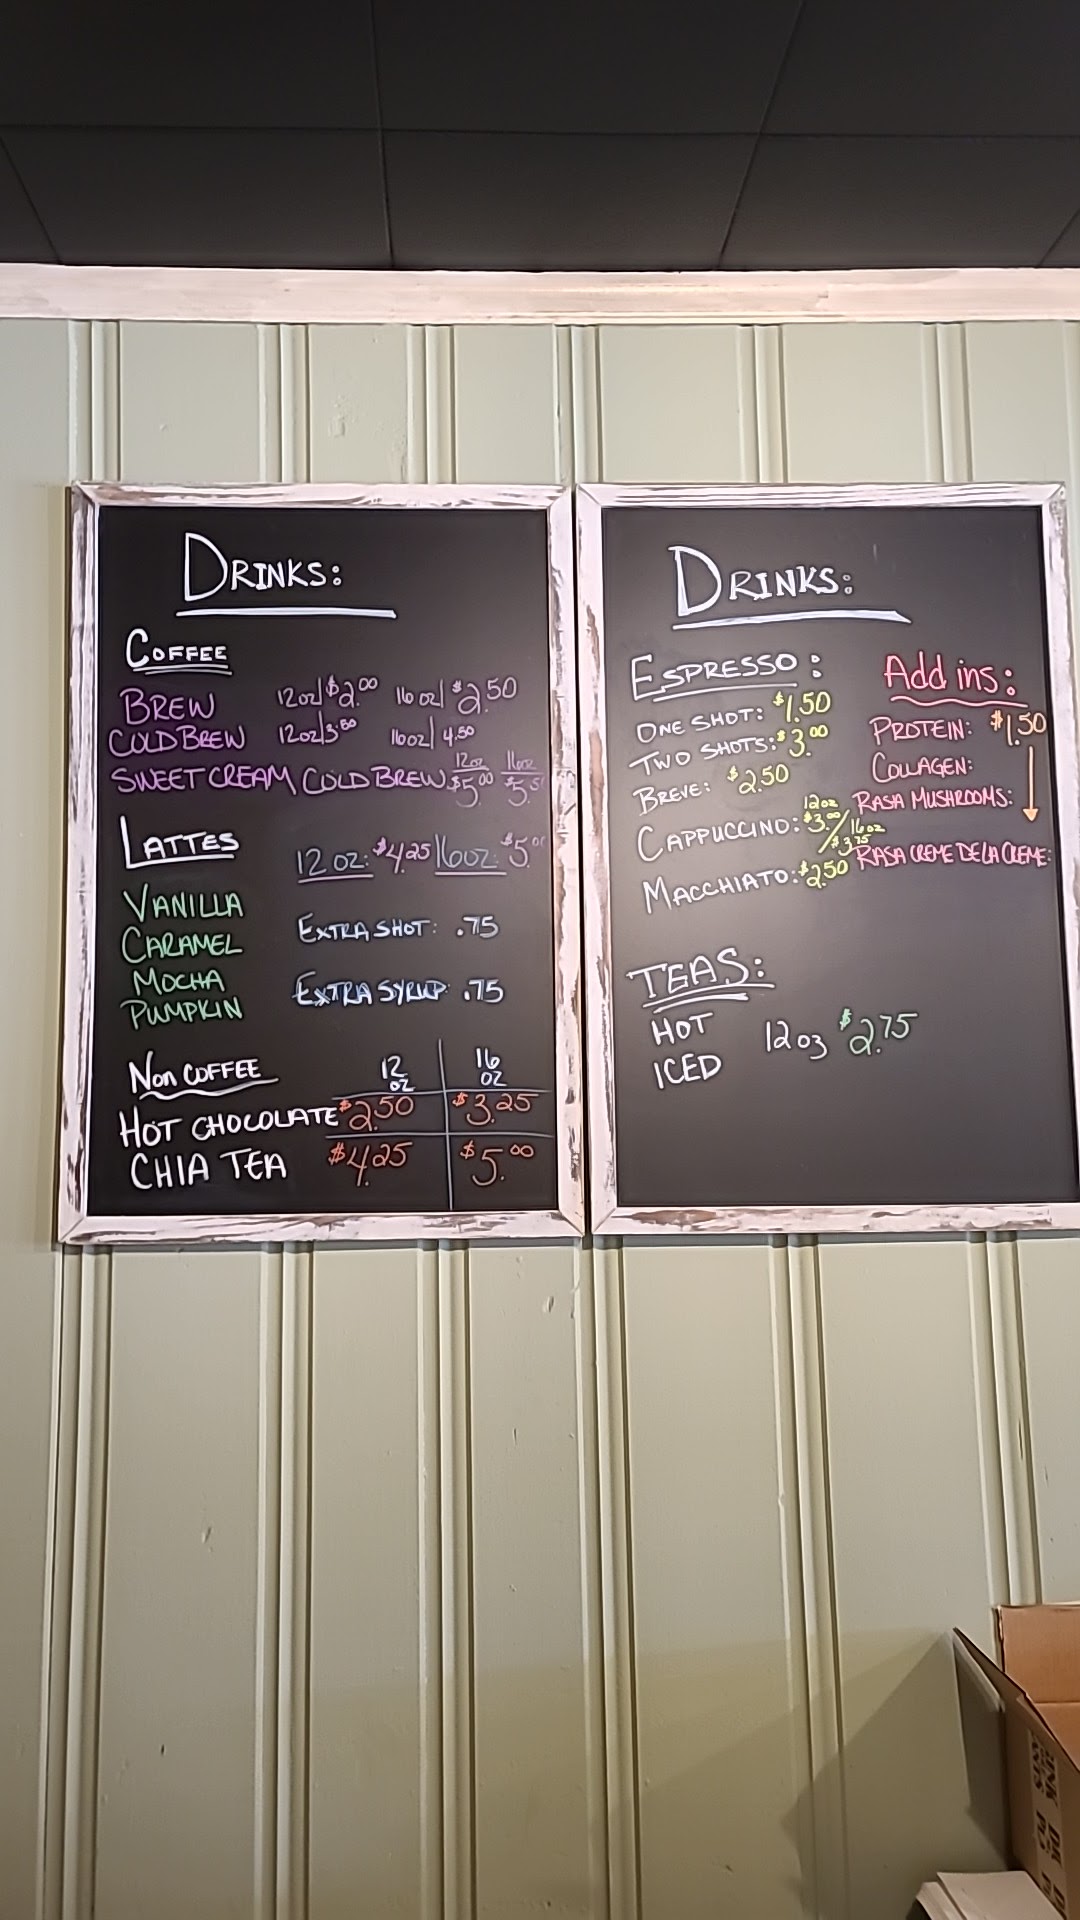 DRINKS:
COFFEE
BREW 12oz| $2.00 16oz| $2.50
COLD BREW 12oz| 3.50 16oz| 4.50
SWEET CREAM COLD BREW 12oz $5.00 16oz $5.5
LATTES 12oz: $4.25 16oz: $5.00
VANILLA
EXTRA SHOT: .75
CARAMEL
MOCHA
EXTRA SYRUP .75
PUMPKIN
NON COFFEE 12 OZ 16 OZ
HOT CHOCOLATE $2.50 $3.25
CHIA TEA $4.25 $5.00
DRINKS:
ESPRESSO:
ONE SHOT: $1.50
TWO SHOTS: $3.00
BREVE: $2.50
CAPPUCCINO: 12oz $3.00 / 16oz $3.75
MACCHIATO: $2.50
Add ins:
PROTEIN: $1.50
COLLAGEN:
RASA MUSHROOMS:
RASA CREME DE LA CREME:
TEAS:
HOT
12oz $2.75
ICED